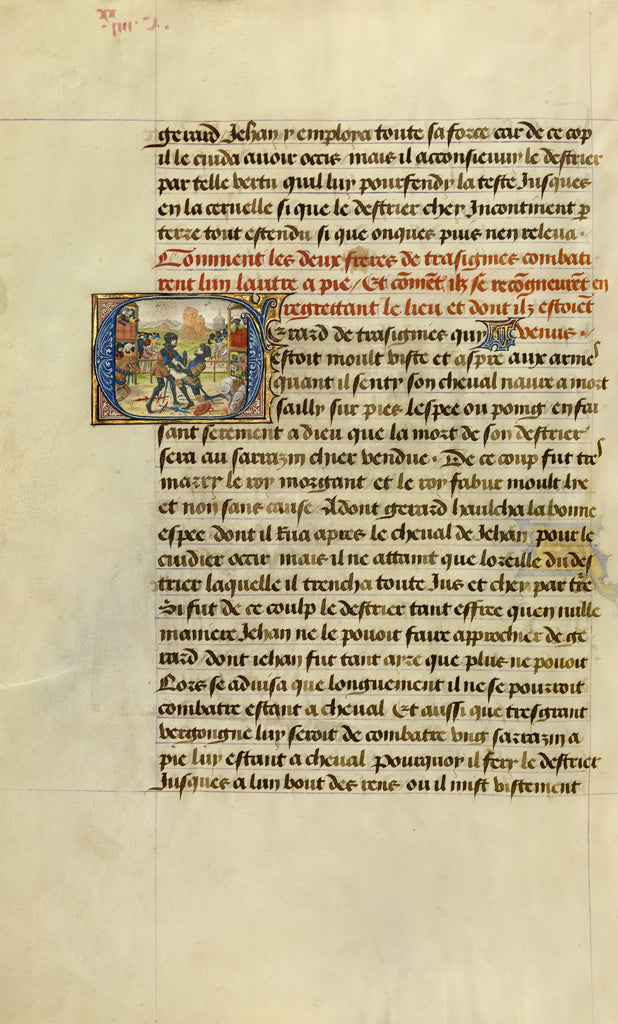 gerard Jehan y employa toute sa force car de ce cop
il le cuida auoir occis mais il acconsieuuy le destrier
par telle vertu quil luy pourfendy la teste Jusques
en la ceruelle si que le destrier chey Incontinent p
terre tout estendu si que onques puis nen releua.
Comment les deux freres de trasignies combati
rent lun lautre a pie / Et cōmēt ilz se recōgneurēt en
regrettant le lieu et dont ilz estoiēt
Gerard de trasignies qui venus.
estoit moult viste et aspre aux armes
quant il senty son cheual naure a mort
sailly sur pies lespee ou poing en fai
sant serement a dieu que la mort de son destrier
sera au sarrazin chier vendue. De ce coup fut tres
marry le roy morgant et le roy fabur moult lye
et non sans cause Adont gerard haulcha la bonne
espee dont il Rua apres le cheual de Jehan pour le
cuidier occir mais il ne attaint que loreille du des
trier laquelle il trencha toute Jus et chey par tr̄e
Si fut de ce coulp le destrier tant effree quen nulle
maniere Jehan ne le pouoit faire approchier de ge
rard dont iehan fut tant ayre que plus ne pouoit
Lors se aduisa que longuement il ne se pourroit
combatre estant a cheual Et aussi que tresgrant
vergongne luy seroit de combatre vng sarrazin a
pie luy estant a cheual Pourquoy il fery le destrier
Jusques a lun bout des rens ou il mist vistement